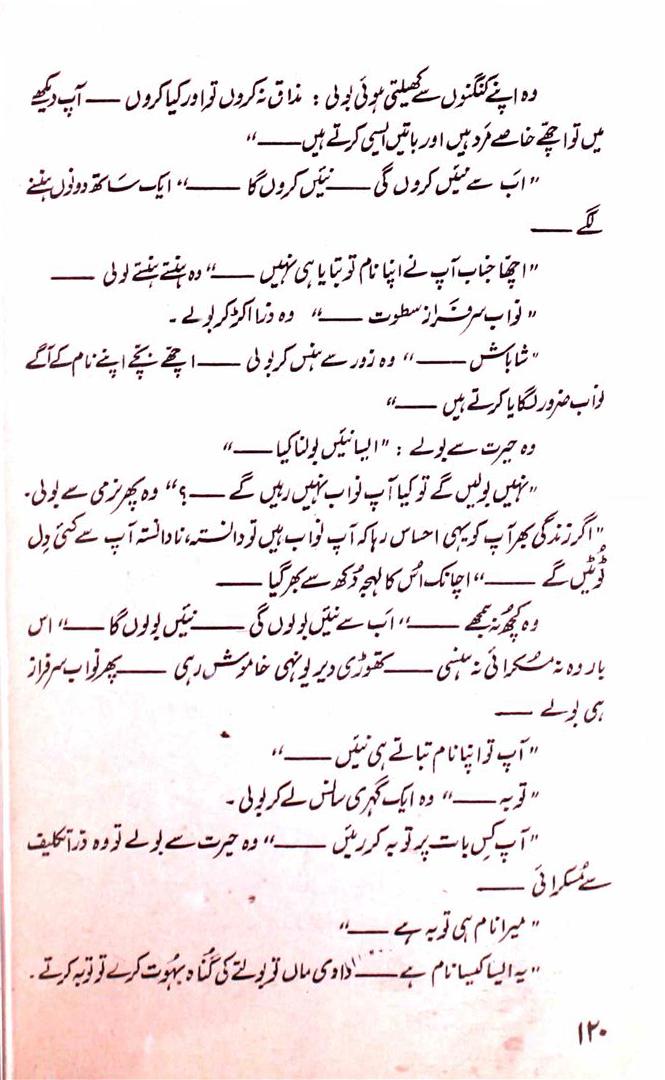 وہ اپنے کنگنوں سے کھیلتی ہوئی بولی : مذاق نہ کروں تو اور کیا کروں —— آپ دیکھنے
میں تو اچھے خاصے مَرد ہیں اور باتیں ایسی کرتے ہیں ——"
"اَب سے نئیں کروں گی —— نئیں کروں گا ——" ایک سَاتھ دونوں ہنسنے
لگے ——
"اچھا جناب آپ نے اپنا نام تو بتایا ہی نہیں ——" وہ ہنستے ہنستے بولی ——
"نواب سرفَراز سطوت ——" وہ ذرا اکڑ کر بولے ۔
"شاباش ——" وہ زور سے ہنس کر بولی —— اچھے بچّے اپنے نام کے آگے
نواب ضرور لگایا کرتے ہیں ——"
وہ حیرت سے بولے : "ایسا نئیں بولنا کیا ——"
"نہیں بولیں گے تو کیا آپ نواب نہیں رہیں گے —— ؟" وہ پھر نرمی سے بولی۔
"اگر زندگی بھر آپ کو یہی احساس رہا کہ آپ نواب ہیں تو دانستہ، نادانستہ آپ سے کئی دِل
ٹُوٹیں گے ——" اچانک اُس کا لہجہ دُکھ سے بھر گیا ——
وہ کچُھ نہ سمجھے ——" اَب سے نئیں بولوں گی —— نئیں بولوں گا ——" اس
بار وہ نہ مُسکرائی نہ ہنسی —— تھوڑی دیر یونہی خاموش رہی —— پھر نواب سرفراز
ہی بولے ——
"آپ تو اپنا نام بتاتے ہی نئیں ——"
"توبہ ——" وہ ایک گہری سانس لے کر بولی ۔
"آپ کِس بات پر توبہ کررئیں ——" وہ حیرت سے بولے تو وہ ذرا تکلیف
سے مُسکرائی ——
"میرا نام ہی توبہ ہے ——"
"یہ ایسا کیسا نام ہے —— دادی ماں تو بولتے کی گُناہ بہُوت کرے تو توبہ کرتے ۔
۱۲۰